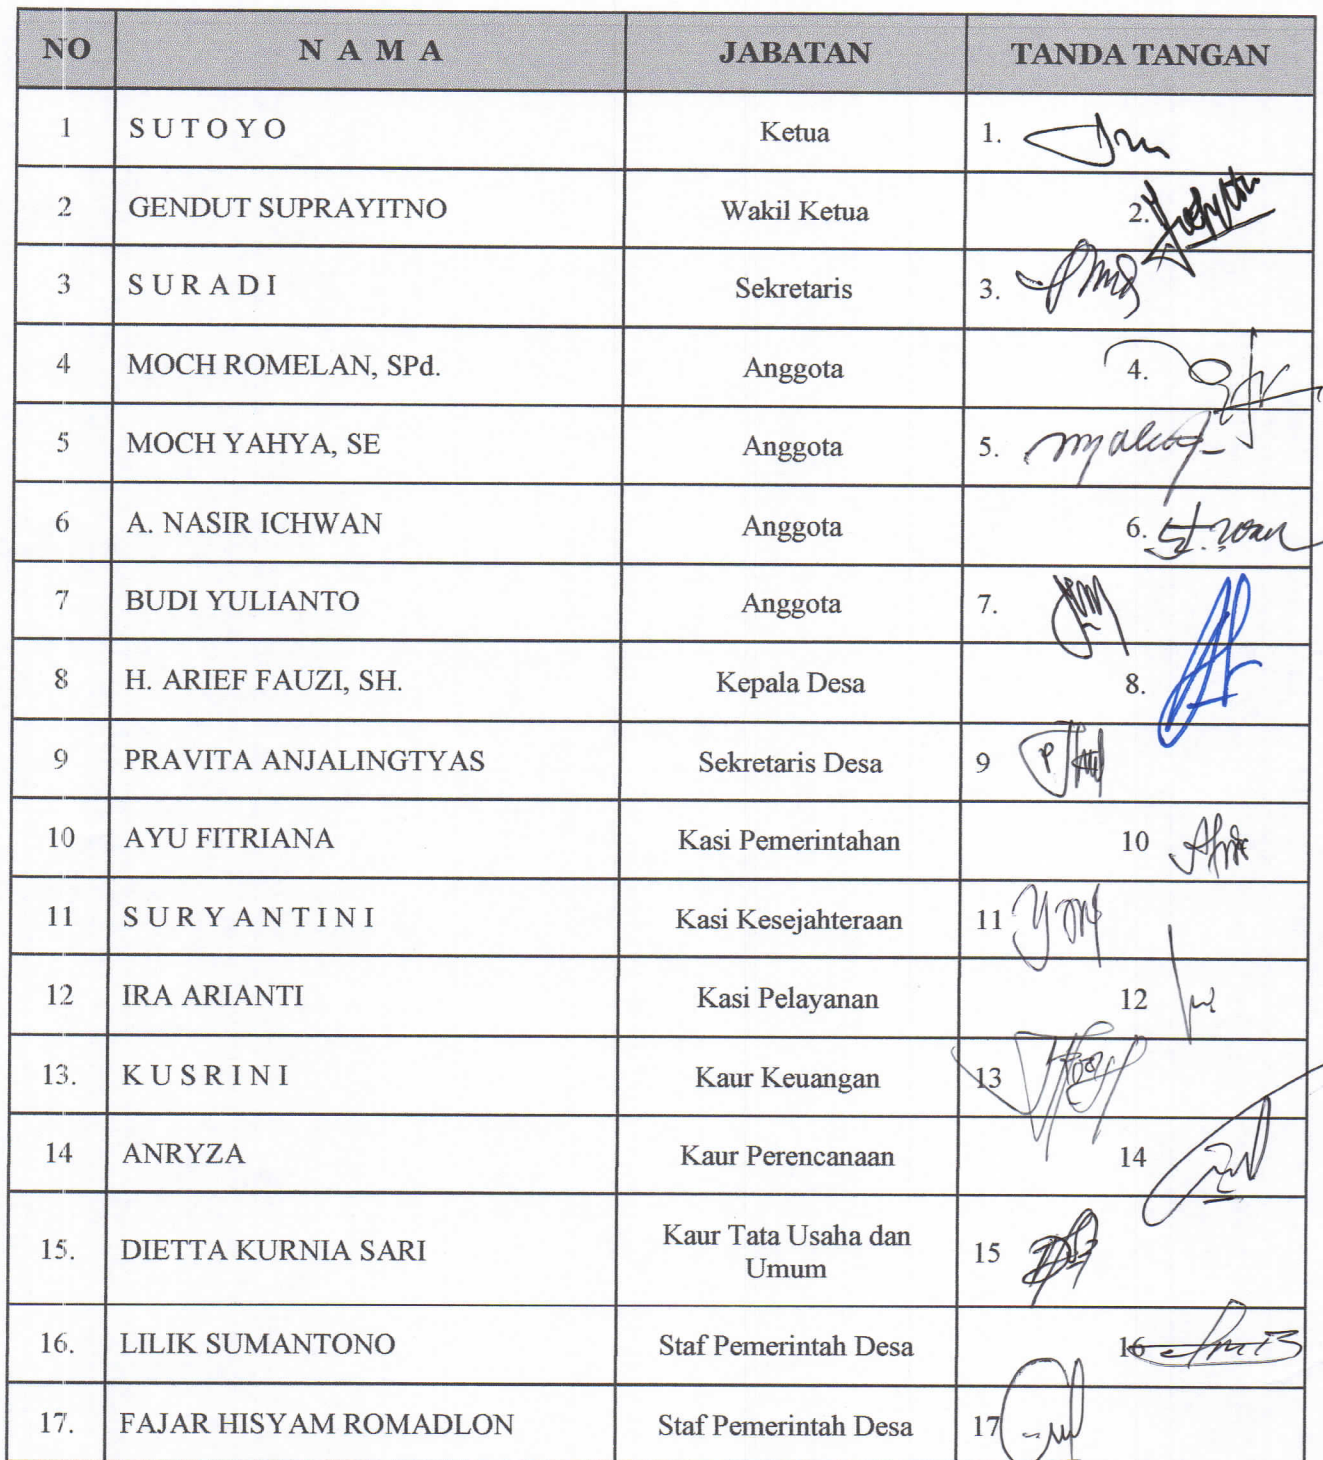 NO N A M A JABATAN TANDA TANGAN
1 S U T O Y O Ketua 1.
2 GENDUT SUPRAYITNO Wakil Ketua 2.
3 S U R A D I Sekretaris 3.
4 MOCH ROMELAN, SPd. Anggota 4.
5 MOCH YAHYA, SE Anggota 5.
6 A. NASIR ICHWAN Anggota 6.
7 BUDI YULIANTO Anggota 7.
8 H. ARIEF FAUZI, SH. Kepala Desa 8.
9 PRAVITA ANJALINGTYAS Sekretaris Desa 9
10 AYU FITRIANA Kasi Pemerintahan 10
11 S U R Y A N T I N I Kasi Kesejahteraan 11
12 IRA ARIANTI Kasi Pelayanan 12
13. K U S R I N I Kaur Keuangan 13
14 ANRYZA Kaur Perencanaan 14
15. DIETTA KURNIA SARI Kaur Tata Usaha dan 15
Umum
16. LILIK SUMANTONO Staf Pemerintah Desa 16
17. FAJAR HISYAM ROMADLON Staf Pemerintah Desa 17